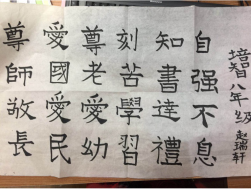 培智八年級 趙瑞軒
自强不息
知書達禮
刻苦學習
尊老愛幼
愛國愛民
尊師敬長